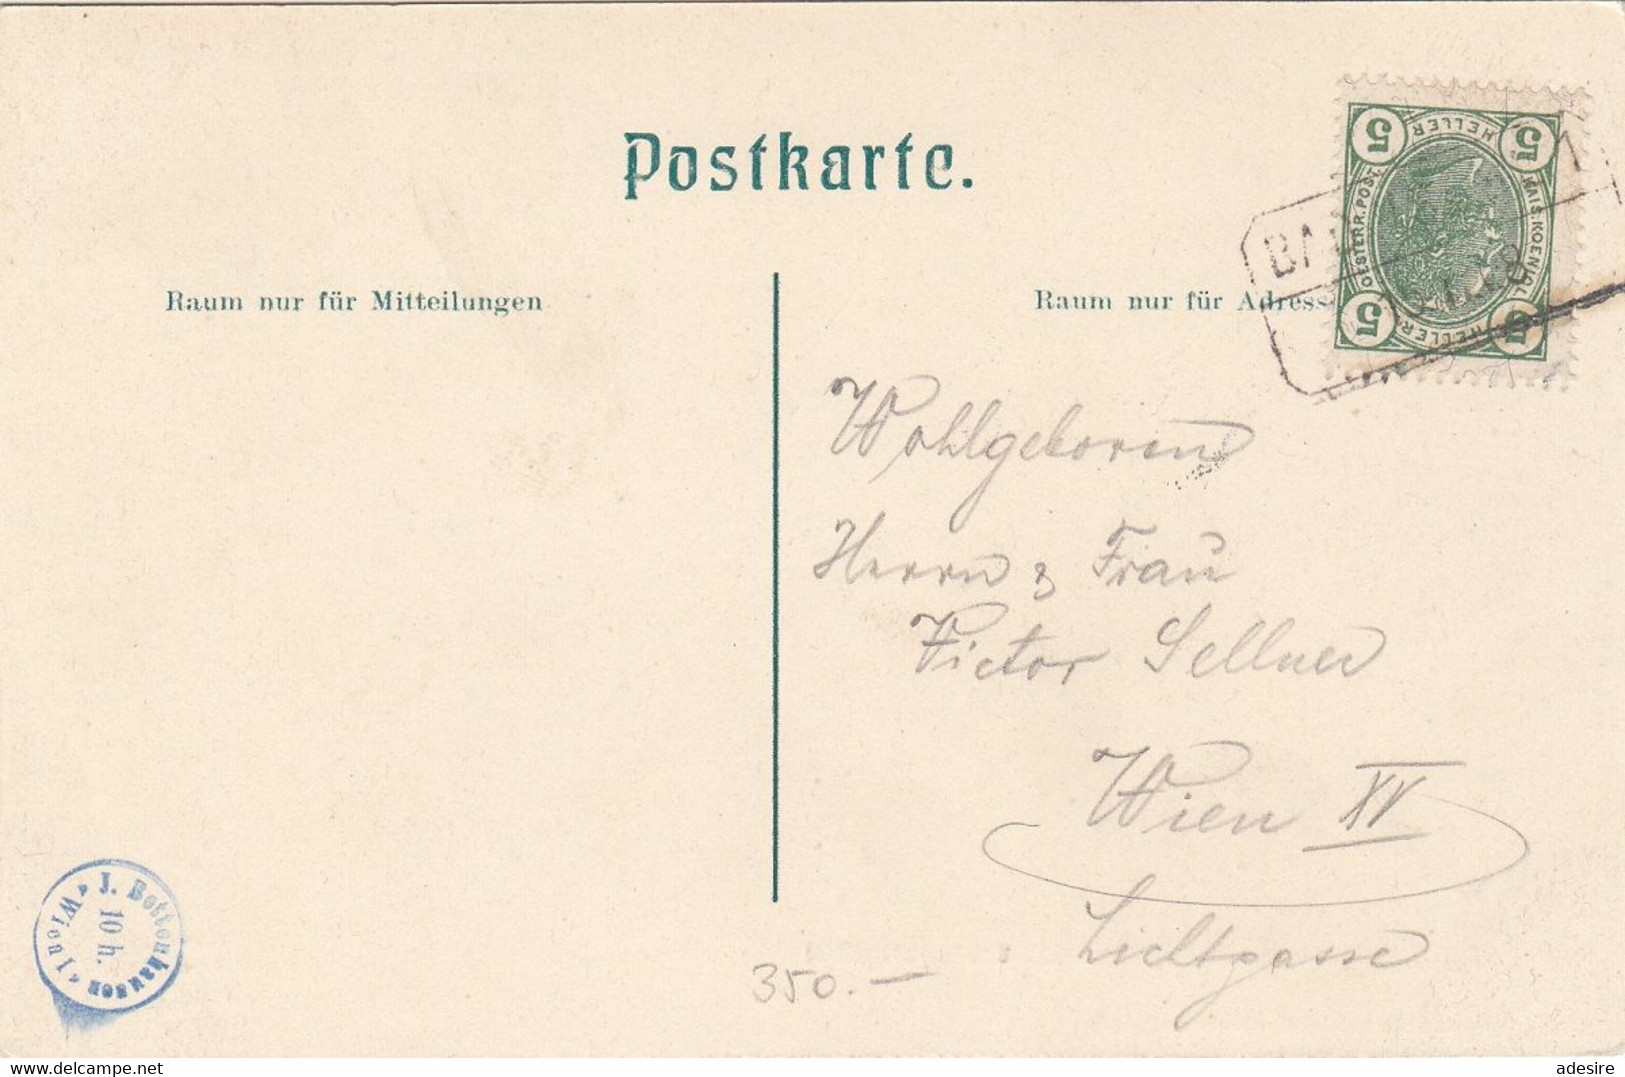 Postkarte.
Raum nur für Mitteilungen
Raum nur für Adress
5 HELLER 5
OESTERR. POST.
KAIS. KOENIGL.
5 HELLER 5
Wohlgeboren
Herrn & Frau
Victor Sellner
Wien XV
Lichtgasse
350.—
J. Bettenhausen
Wien I.
10 h.
delcampe.net
adesire